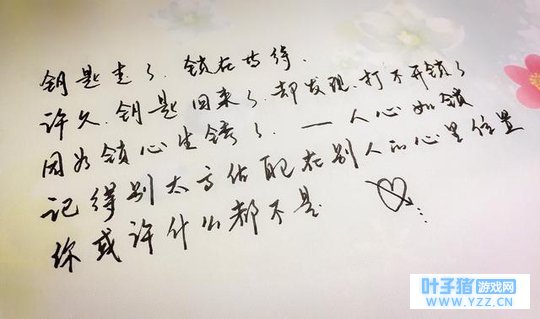 钥匙走了.锁在等待.
许久.钥匙回来了.却发现.打不开锁了
因为锁心生锈了.—人心如锁
记得别太高估在别人的心里位置
你或许什么都不是
叶子猪游戏网
WWW.YZZ.CN